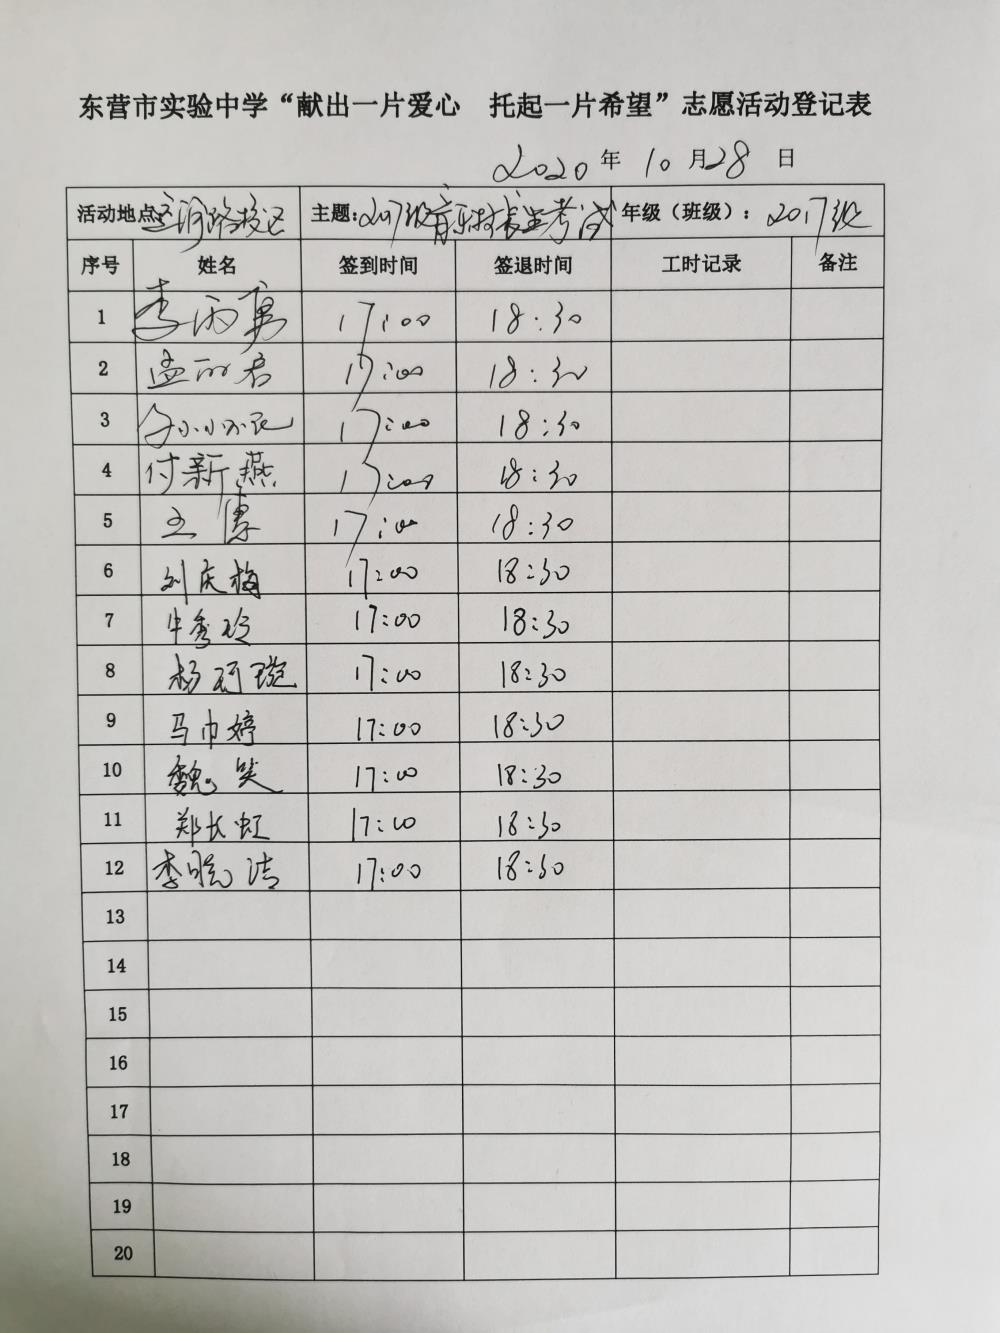 东营市实验中学“献出一片爱心 托起一片希望”志愿活动登记表
2020 年 10 月 28 日
活动地点: 运河路校区 主题: 2017级音乐特长生考试 年级（班级）: 2017级
序号 姓名 签到时间 签退时间 工时记录 备注
1 李丙勇 17:00 18:30
2 孟丽君 17:00 18:30
3 17:00 18:30
4 付新燕 17:00 18:30
5 王 17:00 18:30
6 刘庆梅 17:00 18:30
7 牛秀玲 17:00 18:30
8 杨珂璇 17:00 18:30
9 马巾婷 17:00 18:30
10 魏笑 17:00 18:30
11 郑长虹 17:00 18:30
12 李晓洁 17:00 18:30
13
14
15
16
17
18
19
20